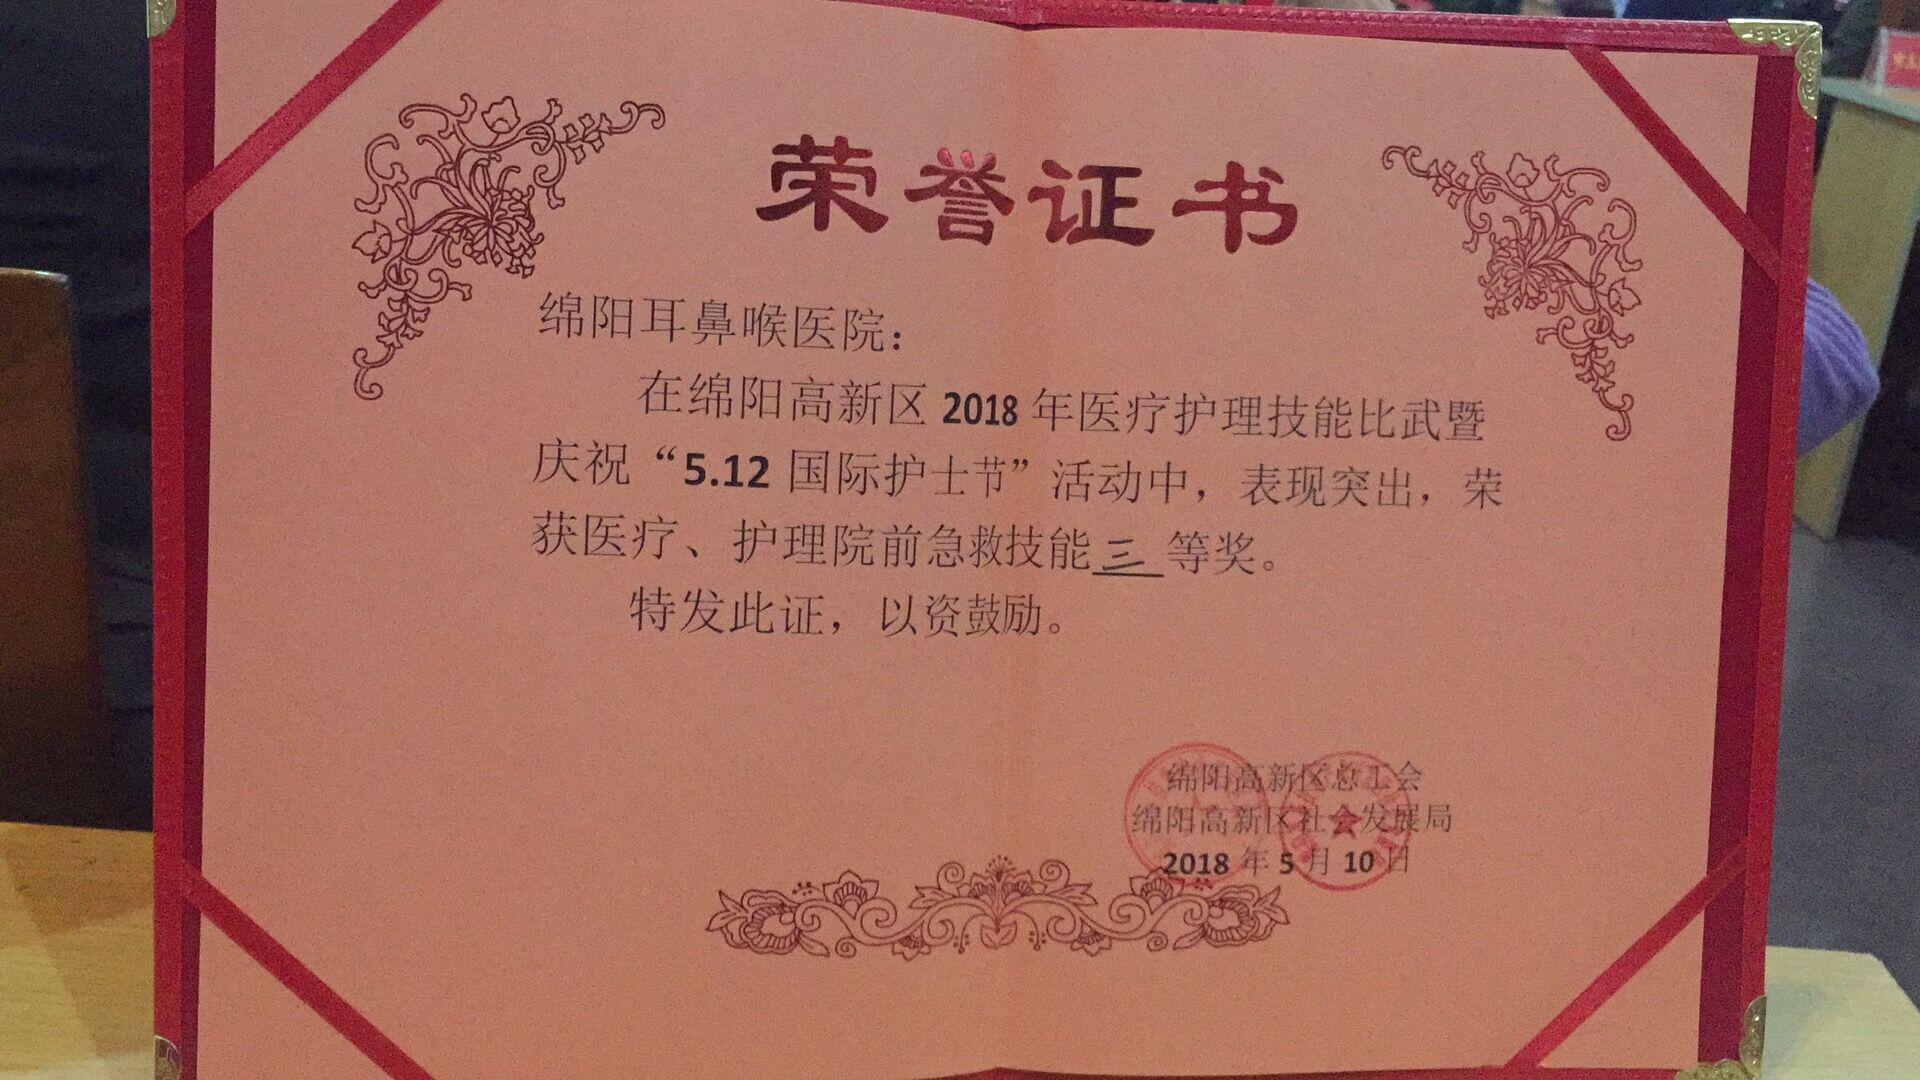 荣誉证书
绵阳耳鼻喉医院：
在绵阳高新区 2018 年医疗护理技能比武暨
庆祝“5.12 国际护士节”活动中，表现突出，荣
获医疗、护理院前急救技能三等奖。
特发此证，以资鼓励。
绵阳高新区总工会
绵阳高新区社会发展局
2018 年 5 月 10 日